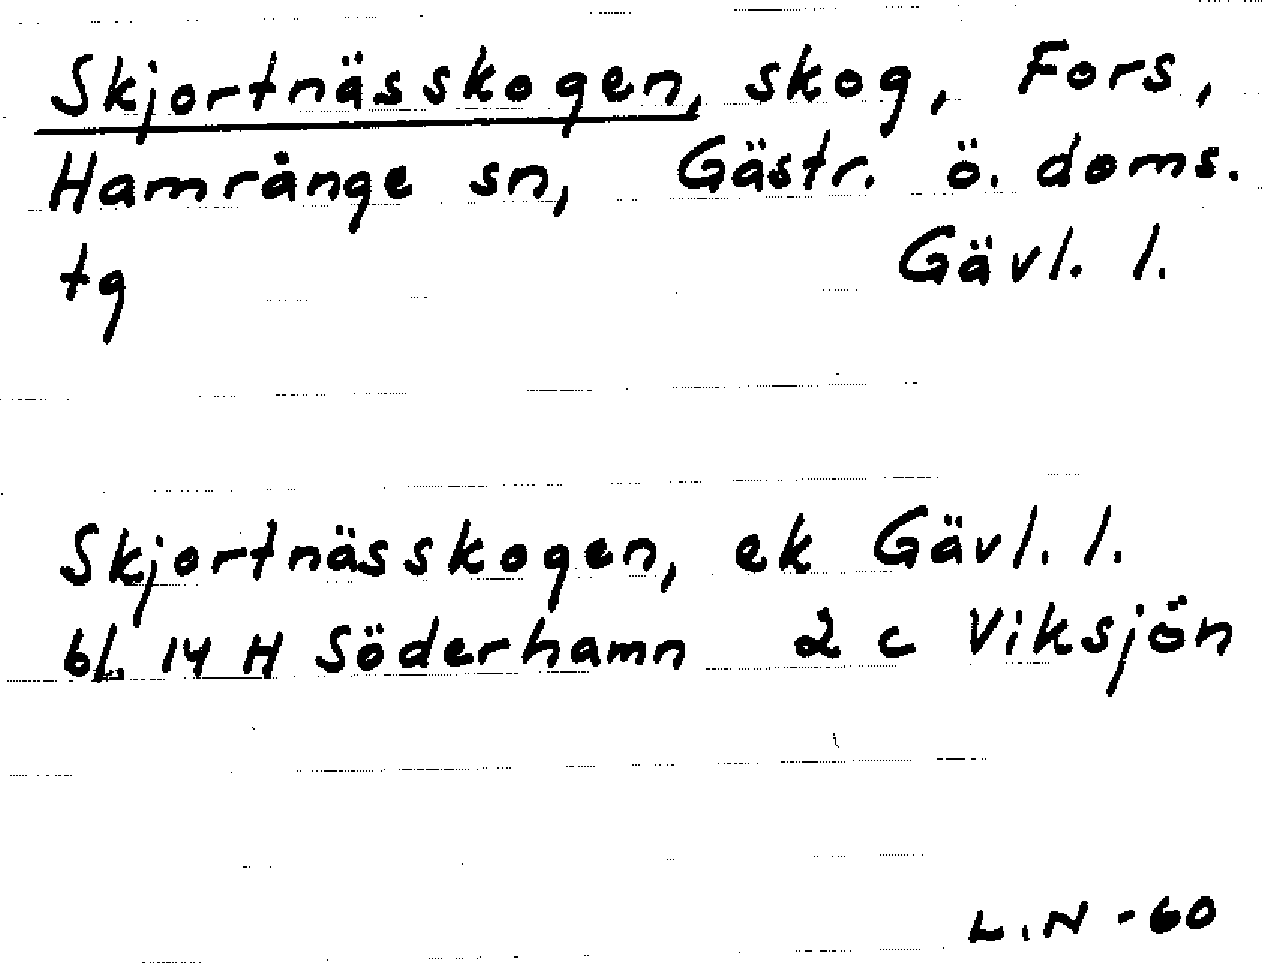 Skjortnässkogen, skog, Fors,
Hamrånge sn, Gästr. ö. doms.
tg Gävl. l.
Skjortnässkogen, ek Gävl. l.
bl. 14 H Söderhamn 2 c Viksjön
L.N -60